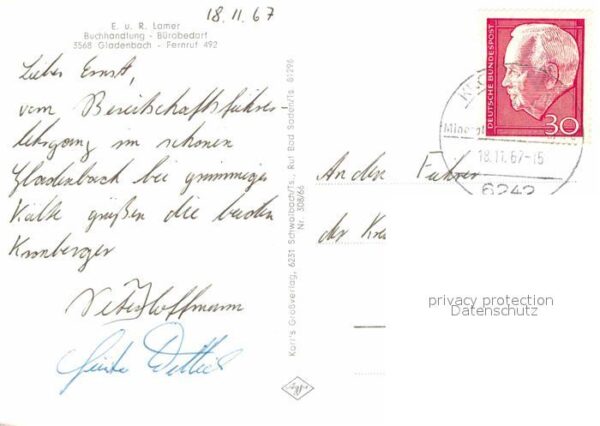 18.11.67
E. u. R. Lamer
Buchhandlung - Bürobedarf
3568 Gladenbach - Fernruf 492
Lieber Ernst,
vom Bereitschaftsführer
lehrgang im schönen
Gladenbach bei grimmiger
Kälte grüßen die beiden
Kronberger
Hoffmann
Karr's Großverlag, 6231 Schwalbach/Ts., Ruf Bad Soden/Ts. 61296
Nr. 308/66
DEUTSCHE BUNDESPOST
30
18.11.67-15
6242
An den Führer
der
privacy protection
Datenschutz